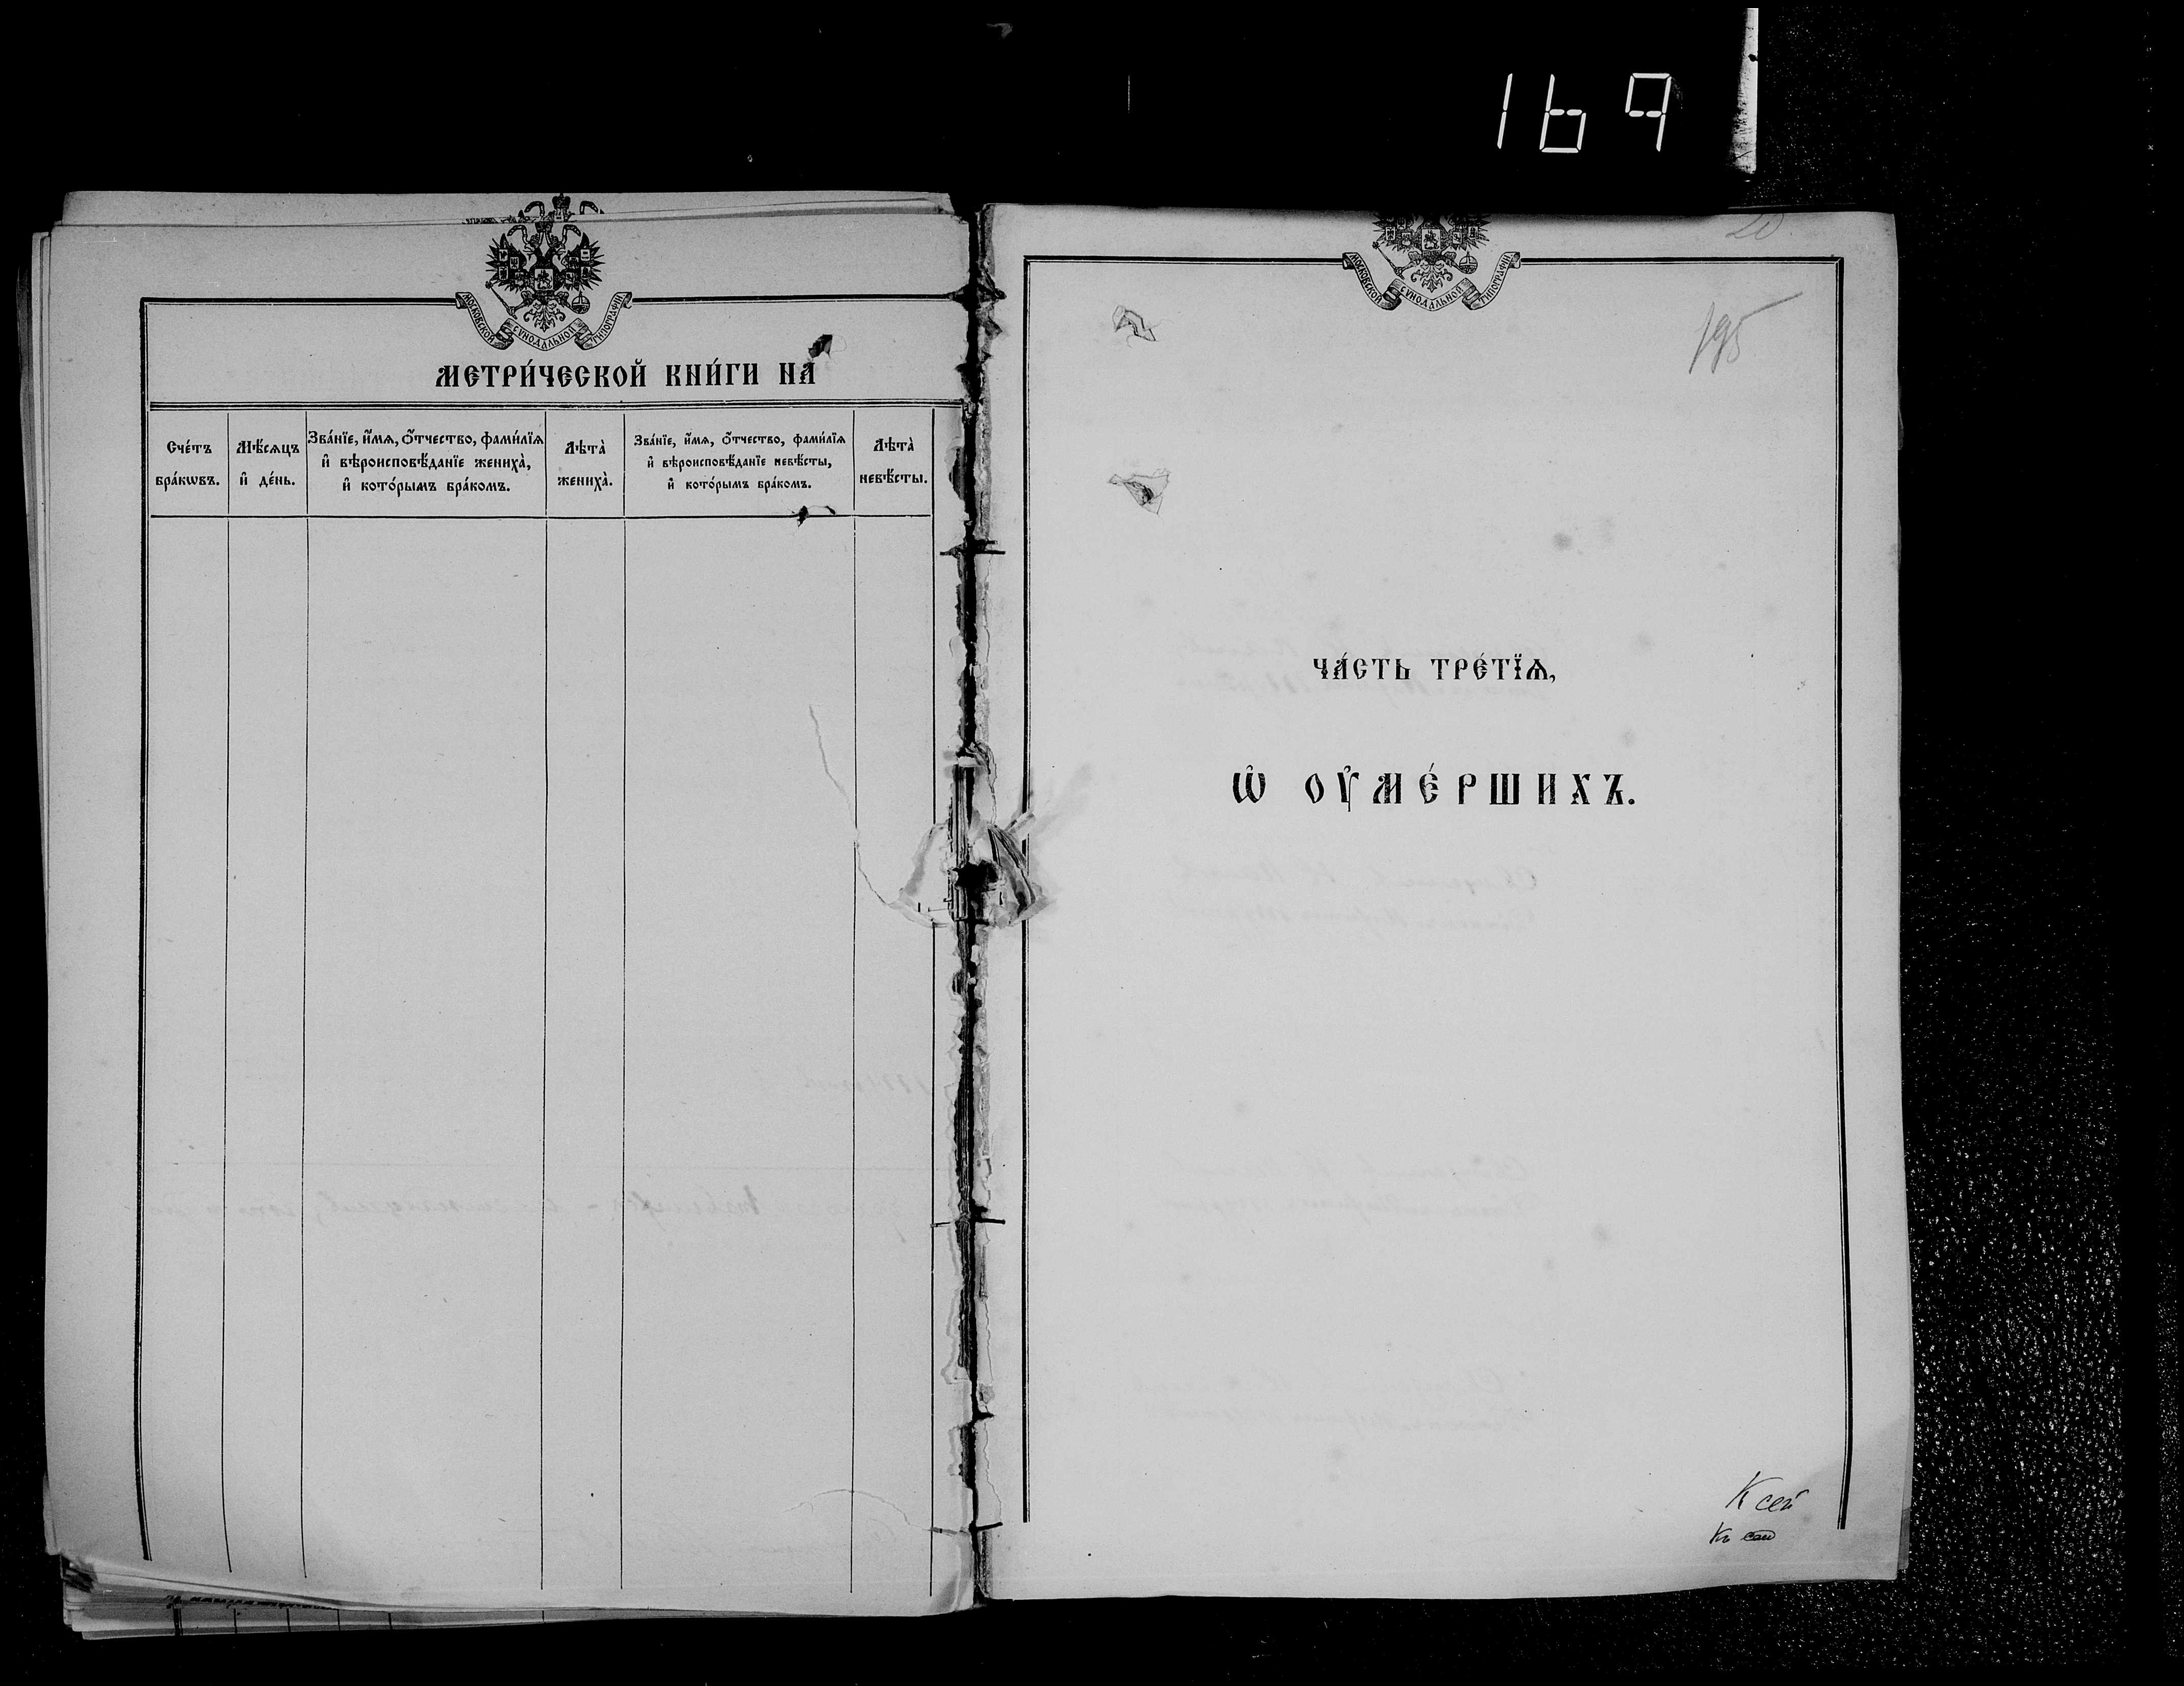 169
МОСКОВСКОЙ СУНОДАЛЬНОЙ ТИПОГРАФІИ
МЕТРИ́ЧЕСКОЙ КНИ́ГИ НА
Сче́тъ бра́кѡвъ.
Мѣ́сѧцъ и҆ де́нь.
Зва́нїе, и҆́мѧ, ѻ҆́тчество, фами́лїѧ
и҆ вѣроисповѣ́данїе жениха̀,
и҆ кото́рымъ бра́комъ.
Лѣта̀ жениха̀.
Зва́нїе, и҆́мѧ, ѻ҆́тчество, фами́лїѧ
и҆ вѣроисповѣ́данїе невѣ́сты,
и҆ кото́рымъ бра́комъ.
Лѣта̀ невѣ́сты.
20
МОСКОВСКОЙ СУНОДАЛЬНОЙ ТИПОГРАФІИ
195
ЧА́СТЬ ТРЕ́ТЇѦ,
Ѡ҆ ОУ҆МЕ́РШИХЪ.
К сей